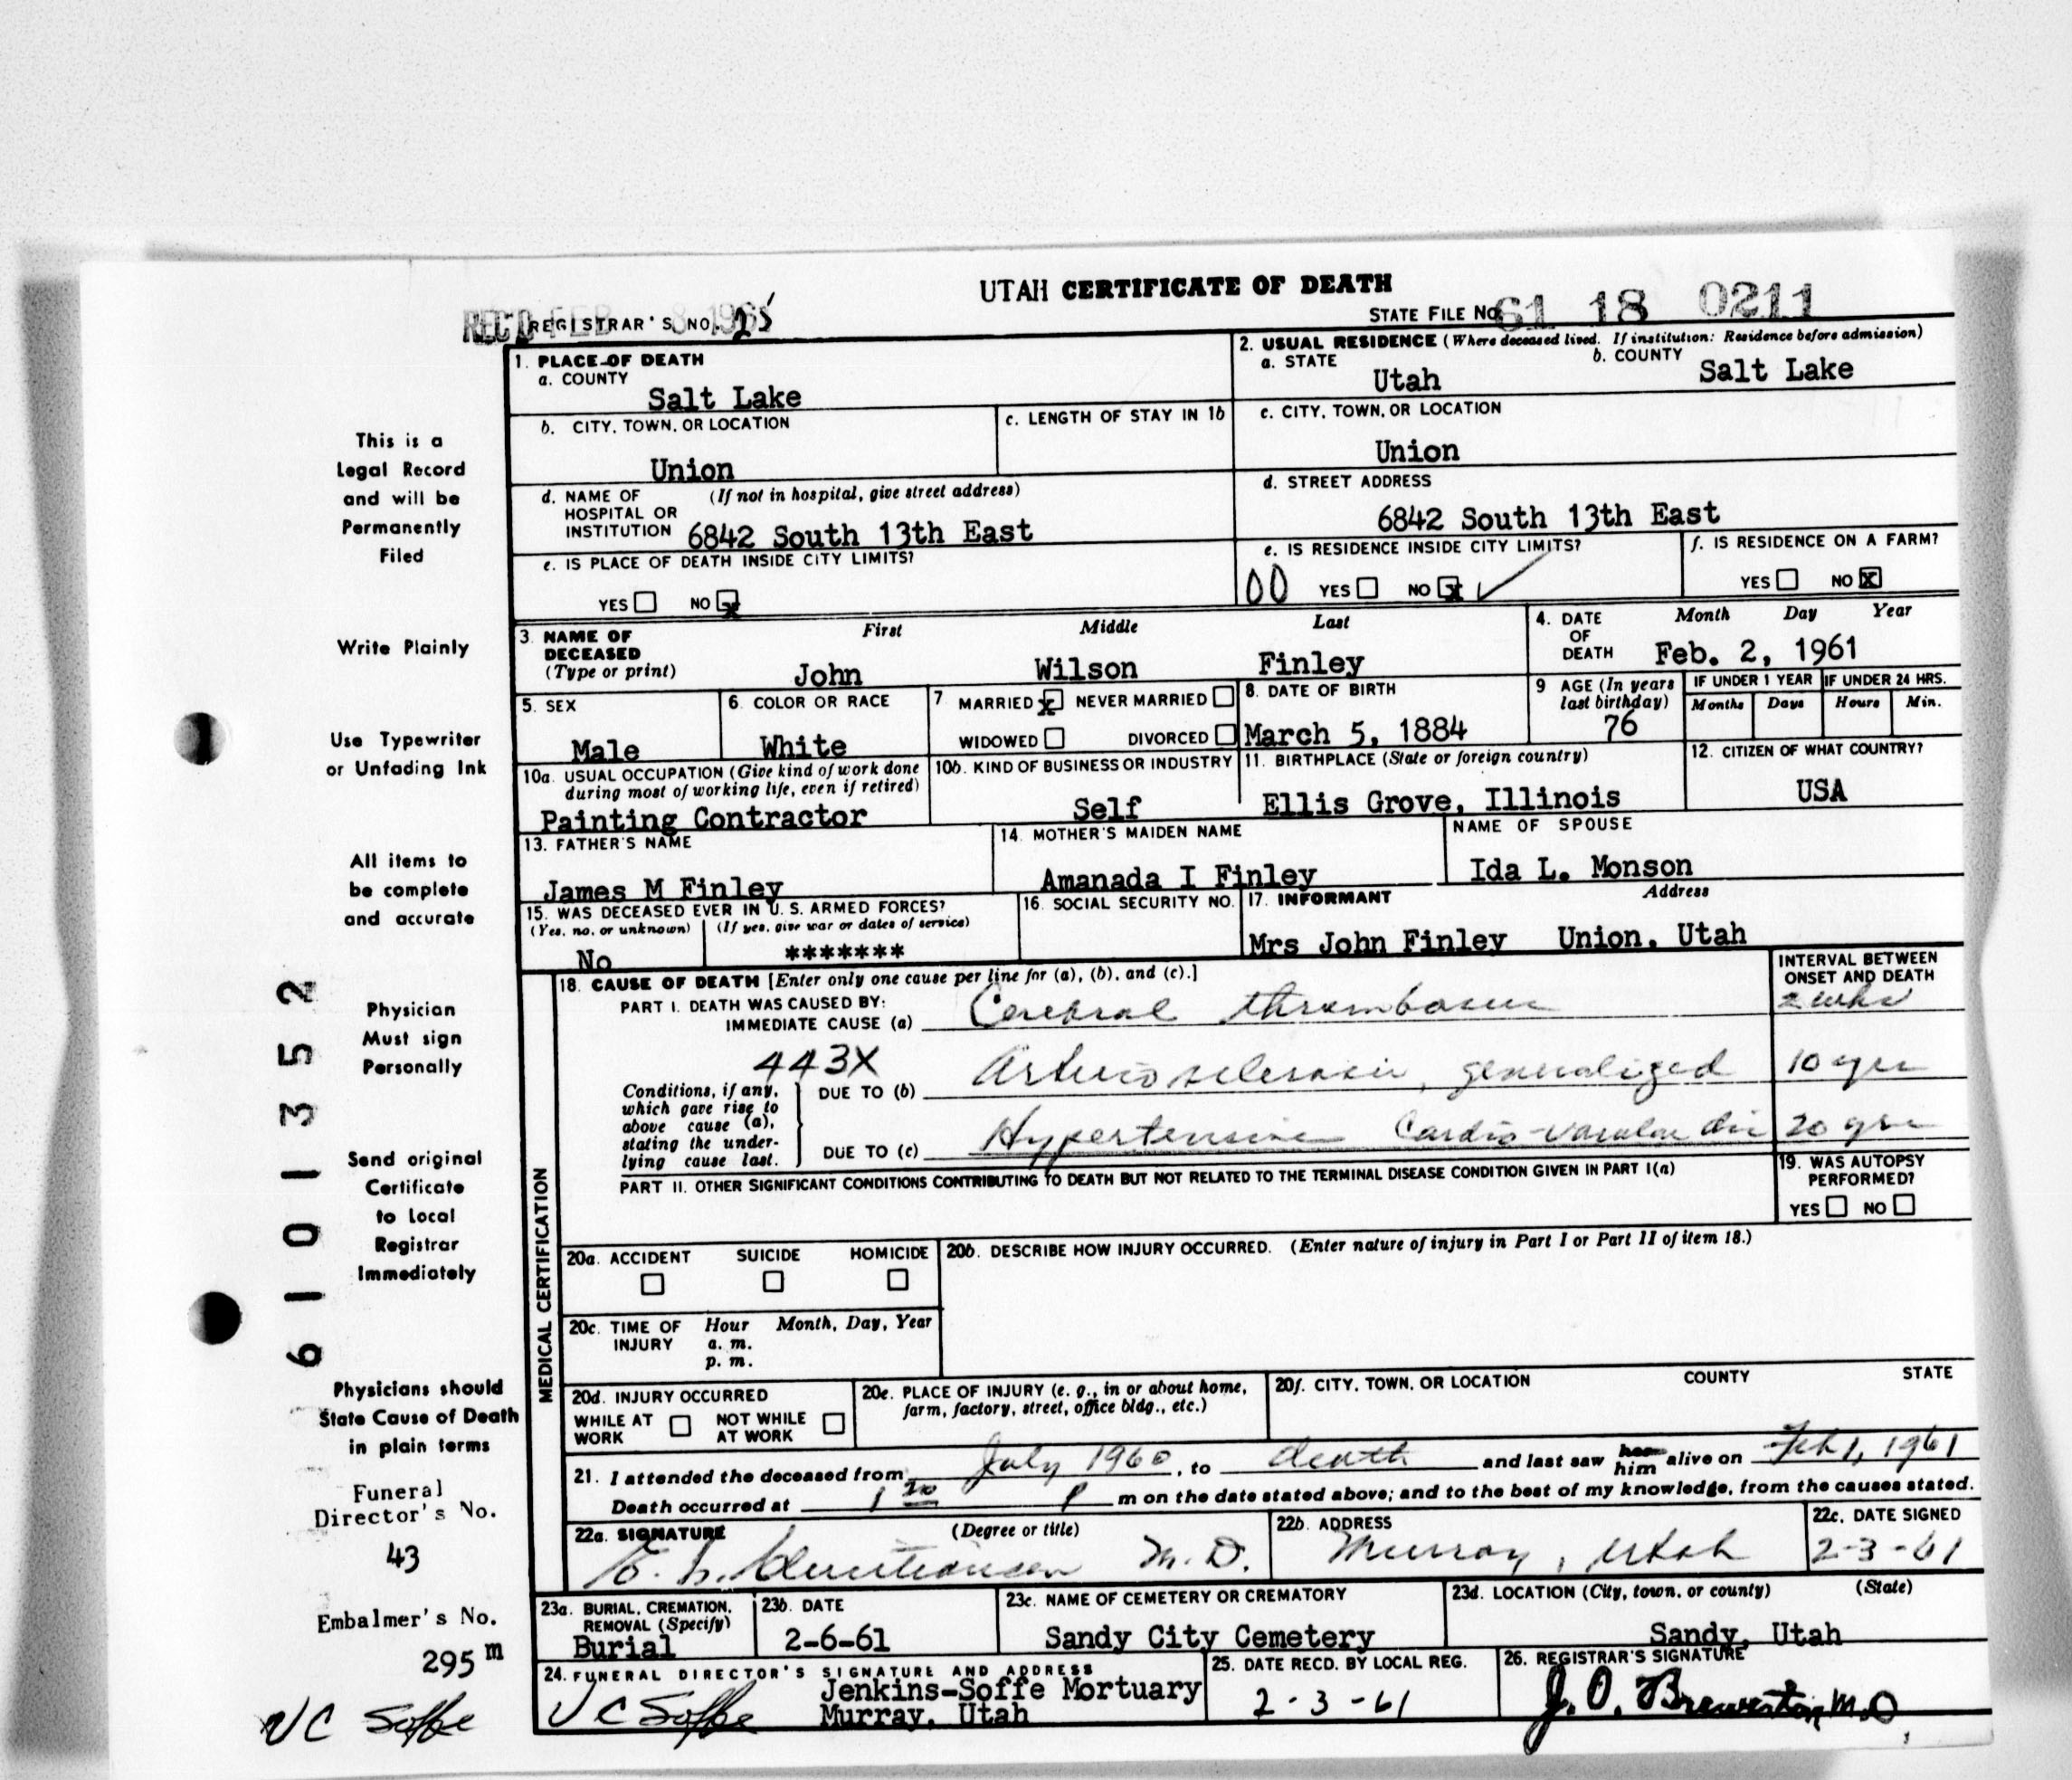 UTAH CERTIFICATE OF DEATH
REC'D FEB 8 1961 REGISTRAR'S NO. 25
STATE FILE NO. 61 18 0211
1. PLACE OF DEATH
a. COUNTY
Salt Lake
b. CITY, TOWN, OR LOCATION
Union
c. LENGTH OF STAY IN 1b
d. NAME OF HOSPITAL OR INSTITUTION (If not in hospital, give street address)
6842 South 13th East
e. IS PLACE OF DEATH INSIDE CITY LIMITS?
YES NO x
2. USUAL RESIDENCE (Where deceased lived. If institution: Residence before admission)
a. STATE Utah
b. COUNTY Salt Lake
c. CITY, TOWN, OR LOCATION
Union
d. STREET ADDRESS
6842 South 13th East
e. IS RESIDENCE INSIDE CITY LIMITS?
00 YES NO x
f. IS RESIDENCE ON A FARM?
YES NO x
3. NAME OF DECEASED (Type or print)
First Middle Last
John Wilson Finley
4. DATE OF DEATH Month Day Year
Feb. 2, 1961
5. SEX
Male
6. COLOR OR RACE
White
7 MARRIED x NEVER MARRIED
WIDOWED DIVORCED
8. DATE OF BIRTH
March 5, 1884
9 AGE (In years last birthday)
76
IF UNDER 1 YEAR IF UNDER 24 HRS.
Months Days Hours Min.
10a. USUAL OCCUPATION (Give kind of work done during most of working life, even if retired)
Painting Contractor
10b. KIND OF BUSINESS OR INDUSTRY
Self
11. BIRTHPLACE (State or foreign country)
Ellis Grove, Illinois
12. CITIZEN OF WHAT COUNTRY?
USA
13. FATHER'S NAME
James M Finley
14. MOTHER'S MAIDEN NAME
Amanada I Finley
NAME OF SPOUSE
Ida L. Monson
15. WAS DECEASED EVER IN U. S. ARMED FORCES?
(Yes, no, or unknown) (If yes, give war or dates of service)
No *******
16. SOCIAL SECURITY NO.
17. INFORMANT Address
Mrs John Finley Union, Utah
MEDICAL CERTIFICATION
18. CAUSE OF DEATH [Enter only one cause per line for (a), (b), and (c).]
INTERVAL BETWEEN ONSET AND DEATH
PART I. DEATH WAS CAUSED BY:
IMMEDIATE CAUSE (a) Cerebral thrombosis 2 wks
443X
Conditions, if any, which gave rise to above cause (a), stating the underlying cause last.
DUE TO (b) Arteriosclerosis, generalized 10 yrs
DUE TO (c) Hypertensive Cardio-vascular dis 20 yrs
PART II. OTHER SIGNIFICANT CONDITIONS CONTRIBUTING TO DEATH BUT NOT RELATED TO THE TERMINAL DISEASE CONDITION GIVEN IN PART I(a)
19. WAS AUTOPSY PERFORMED?
YES NO
20a. ACCIDENT SUICIDE HOMICIDE
20b. DESCRIBE HOW INJURY OCCURRED. (Enter nature of injury in Part I or Part II of item 18.)
20c. TIME OF INJURY Hour a. m. p. m. Month, Day, Year
20d. INJURY OCCURRED
WHILE AT WORK NOT WHILE AT WORK
20e. PLACE OF INJURY (e. g., in or about home, farm, factory, street, office bldg., etc.)
20f. CITY, TOWN, OR LOCATION COUNTY STATE
21. I attended the deceased from July 1960, to death and last saw her him alive on Feb 1, 1961
Death occurred at 1 20 P m on the date stated above; and to the best of my knowledge, from the causes stated.
22a. SIGNATURE (Degree or title)
E. L. Christiansen M. D.
22b. ADDRESS
Murray, Utah
22c. DATE SIGNED
2-3-61
23a. BURIAL, CREMATION, REMOVAL (Specify)
Burial
23b. DATE
2-6-61
23c. NAME OF CEMETERY OR CREMATORY
Sandy City Cemetery
23d. LOCATION (City, town, or county) (State)
Sandy, Utah
24. FUNERAL DIRECTOR'S SIGNATURE AND ADDRESS
V C Soffe
Jenkins-Soffe Mortuary
Murray, Utah
25. DATE RECD. BY LOCAL REG.
2-3-61
26. REGISTRAR'S SIGNATURE
J. O. Brewerton, M.D.
This is a
Legal Record
and will be
Permanently
Filed
Write Plainly
Use Typewriter
or Unfading Ink
All items to
be complete
and accurate
Physician
Must sign
Personally
Send original
Certificate
to Local
Registrar
Immediately
Physicians should
State Cause of Death
in plain terms
Funeral
Director's No.
43
Embalmer's No.
295 m
V C Soffe
6101352